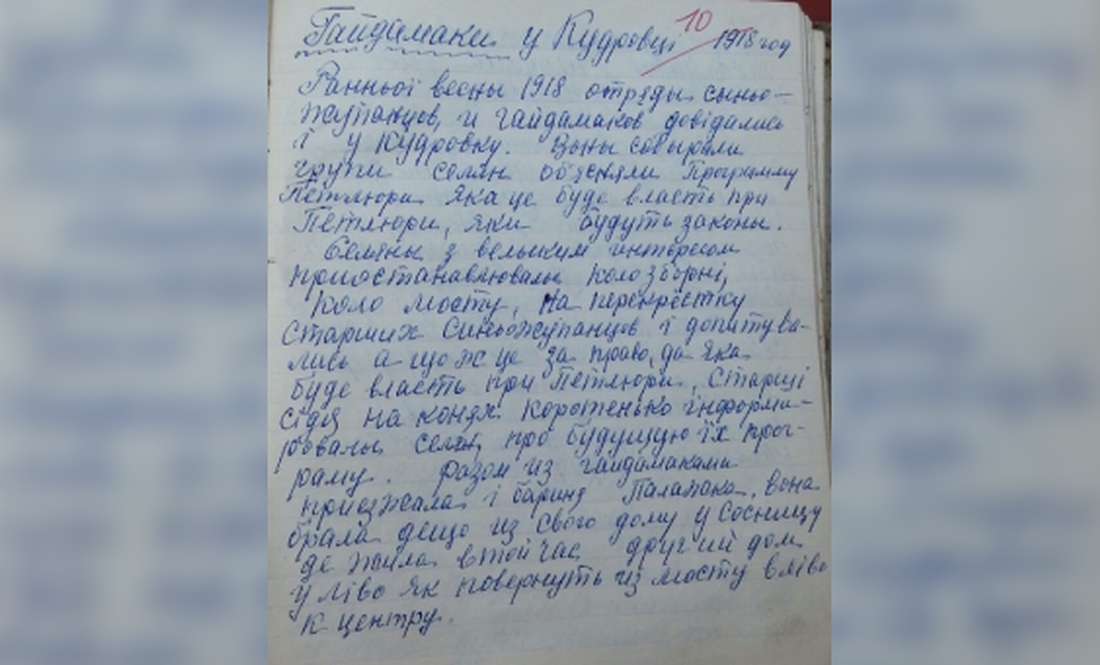 Гайдамаки у Кудровці 1918 год
10
Ранньої весны 1918 отряды сыньо-
жупанцов, и гайдамаков довідались
і у Кудровку. Воны собырали
групи селян обясняли Программу
Петлюри Яка це буде власть при
Петлюри, яки будуть законы.
Селяны з велыким интересом
приостанавлювалы коло зборні,
коло мосту, на перекрёстку
Старших Синьожупанцов і допитува-
лись а що ж це за право, да яка
буде власть при Петлюри. Старші
сідя на конях коротенько інформи-
ровалы селян, про будущую їх прог-
раму. Разом из гайдамаками
приезжала і бариня Паламака, вона
брала дещо из свого дому у Сосницу
де жила в той час другий дом
у ліво як повернуть из мосту вліво
к центру.